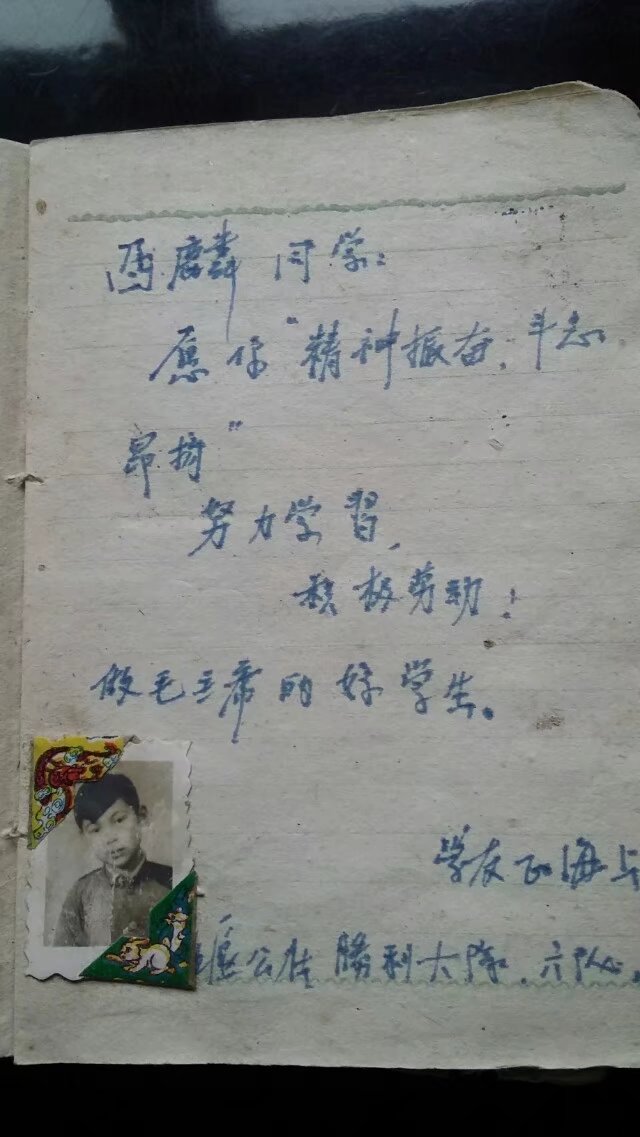 麟同学：
愿你“精神振奋，斗志
昂扬”
努力学習，
积极劳动！
做毛主席的好学生。
学友正海
堰公社勝利大隊，六队